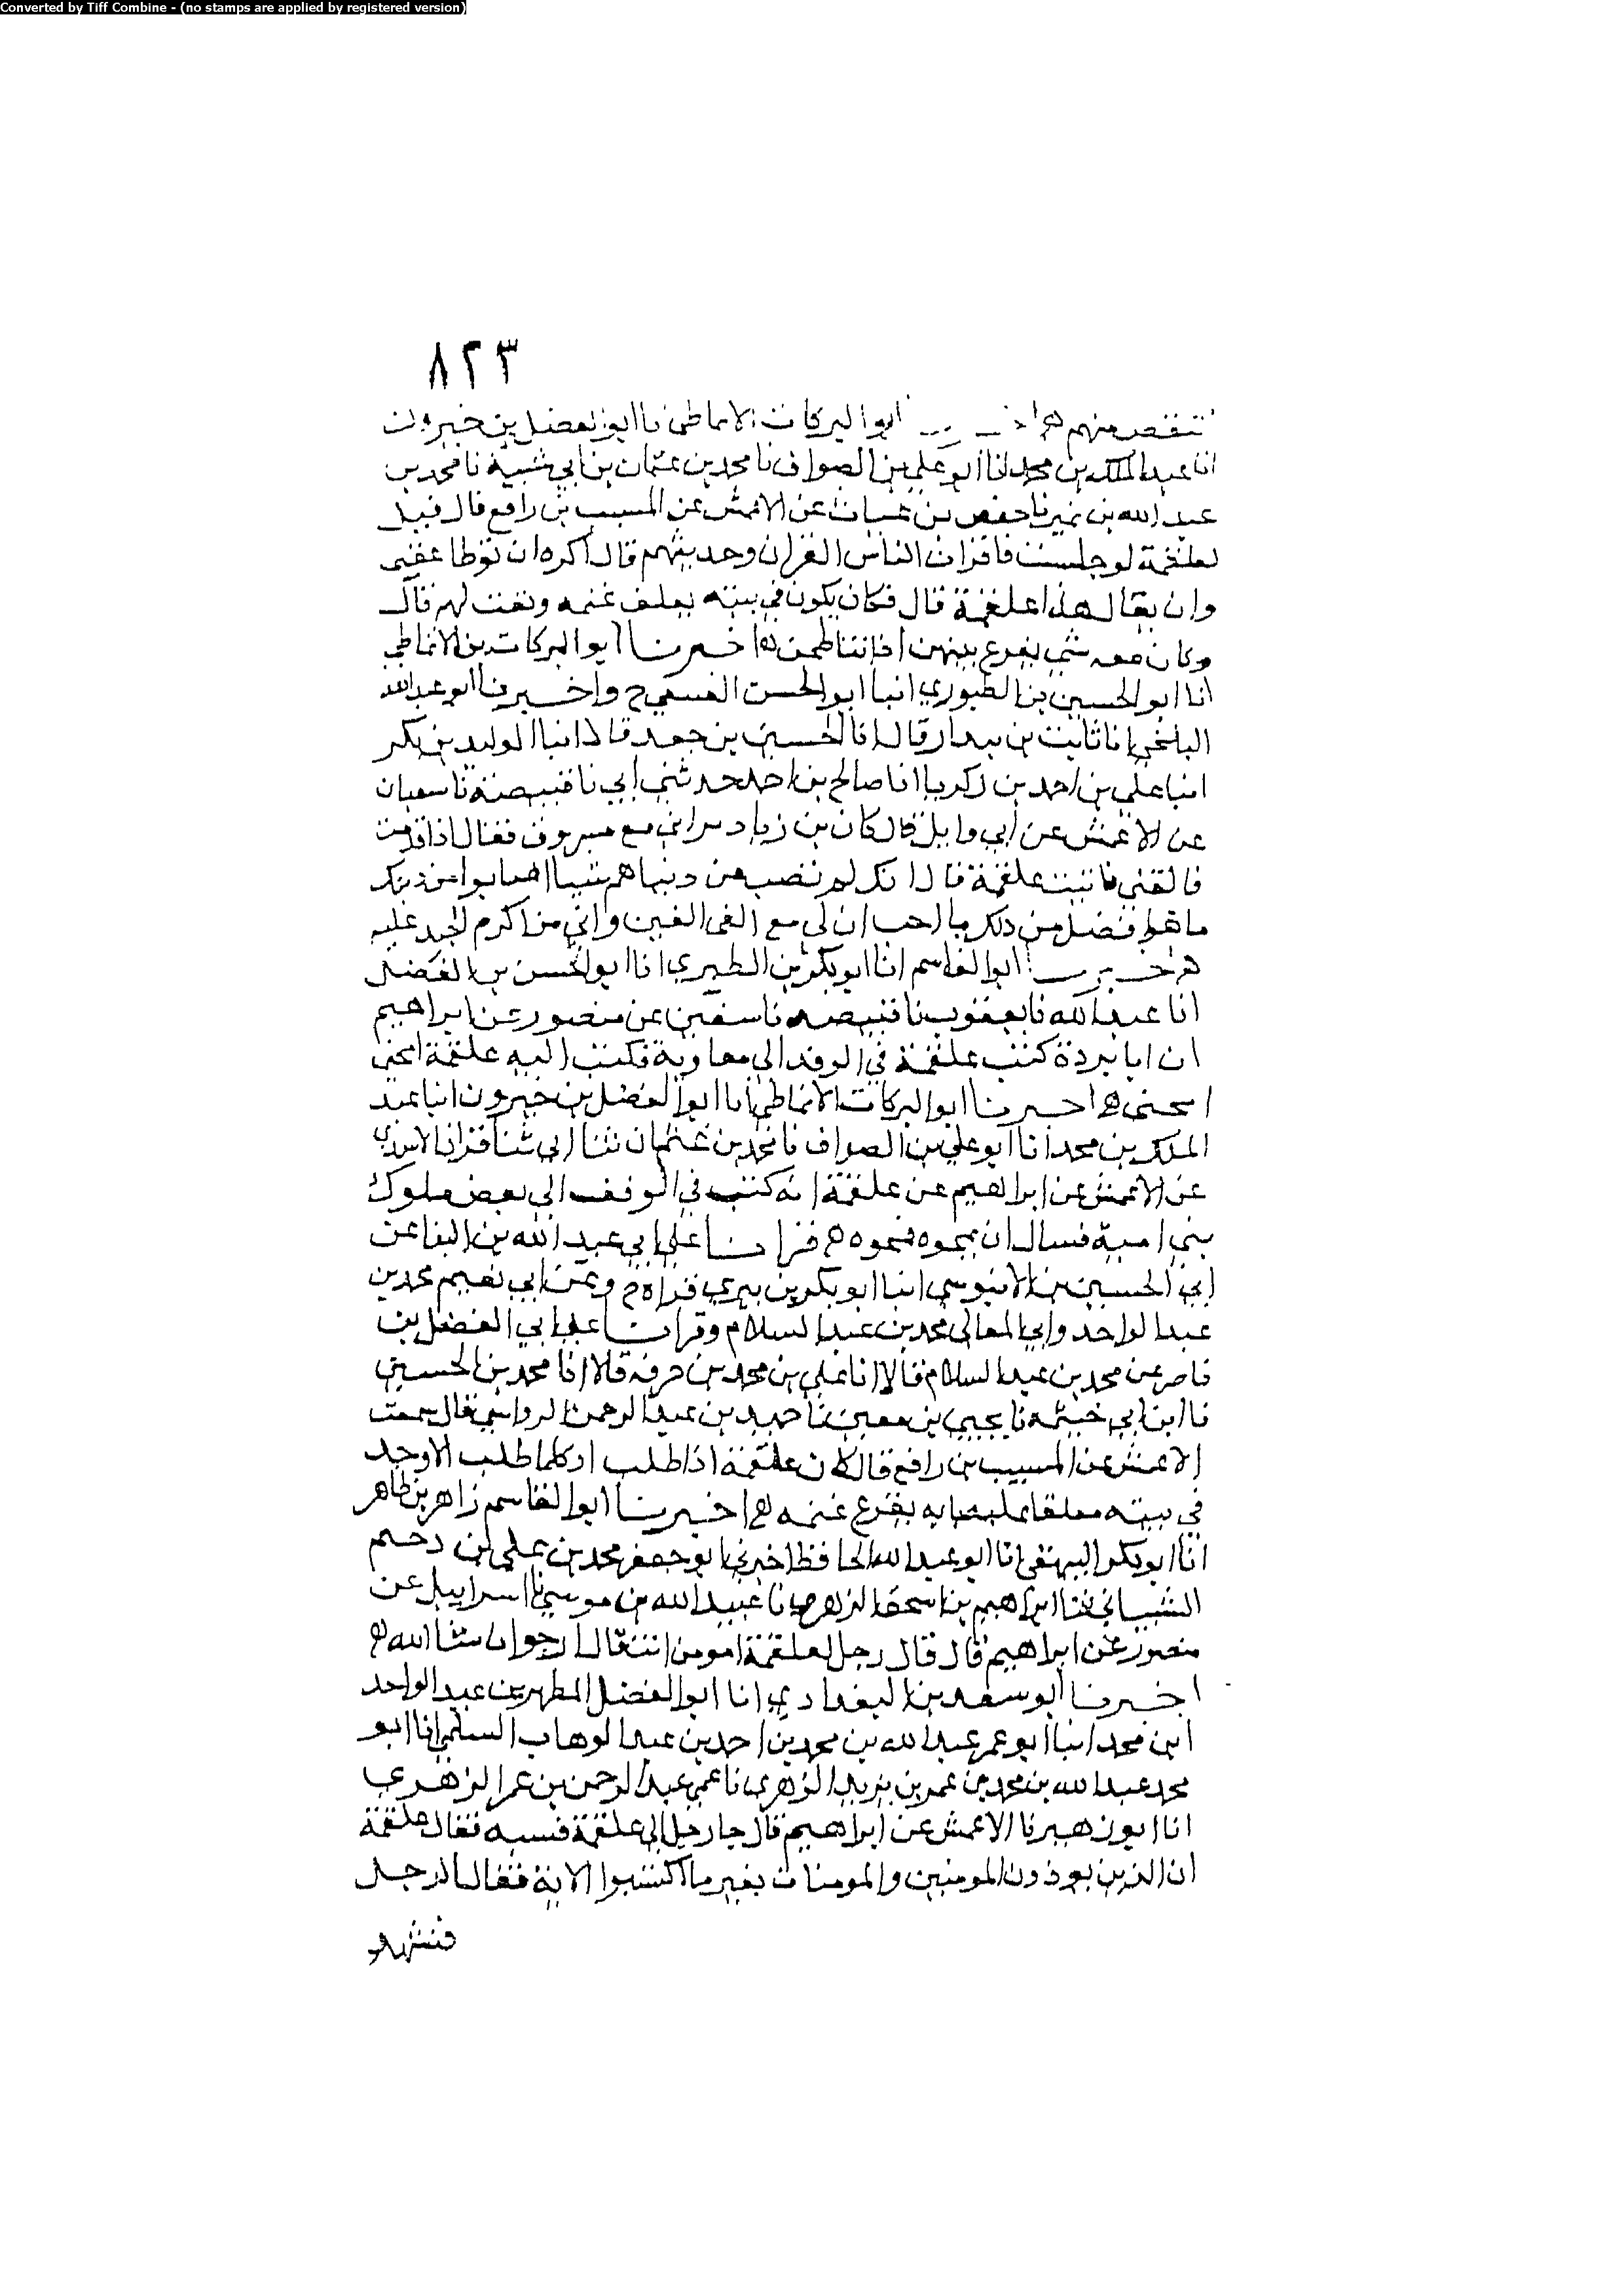 Converted by Tiff Combine - (no stamps are applied by registered version)
٨٢٣
تنقص منهم ابو البركات الانماطي نا ابو الفضل بن خيرون
انا عبد الملك بن محمد انا ابو علي بن الصواف نا محمد بن عثمان بن ابي شيبة نا محمد بن
عبد الله بن نمير نا حفص بن غياث عن الاعمش عن المسيب بن رافع قال قيل
لعلقمة لو جلست فاقرات الناس القران وحدثتهم قال اكره ان توطا عقبي
وان يقال هذا علقمة قال فكان يكون في بيته يعلف غنمه ويفت لهم قال
وكان معه شي يفرع بينهن اذا تناطحن ه اخبرنا ابو البركات بن الانماطي
انا ابو الحسين بن الطيوري انبا ابو الحسن العتيقي ح واخبرنا ابو عبد الله
البلخي انا ثابت بن بندار قال انا الحسين بن جعفر قالا انبا الوليد بن بكر
انبا علي بن احمد بن زكريا انا صالح بن احمد حدثني ابي نا قبيصة نا سفيان
عن الاعمش عن ابي وايل قال كان بن زياد يراني مع مسروق فقال اذا قدمت
فالقني فاتيت علقمة قال انك لم تصب من دنياهم شيا الا اصابوا من دينك
ما هو افضل من ذلك ما احب ان لي مع الفي الفين واني من اكرم الجند عليه
ابو القاسم انا ابو بكر بن الطبري انا ابو الحسين بن الفضل
انا عبد الله نا يعقوب نا قبيصه نا سفين عن منصور عن ابراهيم
ان ابا بردة كتب علقمة في الوفد الى معاوية فكتب اليه علقمة امحني
امحني ه اخبرنا ابو البركات الانماطي انا ابو الفضل بن خيرون انبا عبد
الملك بن محمد انا ابو علي بن الصواف نا محمد بن عثمان ثنا ابي ثنا
عن الاعمش عن ابراهيم عن علقمة انه كتب في الوفد الى بعض ملوك
بني امية فسال ان يمحوه فمحوه ه قرانا على ابي عبد الله بن البنا عن
ابي الحسين بن الابنوسي انبا ابو بكر بن بيري قراة ح وعن ابي نعيم محمد بن
عبد الواحد وابي المعالي محمد بن عبد السلام وقرانا على ابي الفضل بن
ناصر عن محمد بن عبد السلام قالا انا علي بن محمد بن خزفه قالا انا محمد بن الحسين
نا ابن ابي خيثمه نا يحيى بن معين نا حميد بن عبد الرحمن الرواسي قال سمعت
الاعمش عن المسيب بن رافع قال كان علقمة اذا طلب او كلما طلب الا وجد
في بيته معلقا عليه بابه يقرع غنمه ه اخبرنا ابو القاسم زاهر بن طاهر
انا ابو بكر البيهقي انا ابو عبد الله الحافظ اخبرني ابو جعفر محمد بن علي بن دحيم
الشيباني ثنا ابراهيم بن اسحق الزهري نا عبيد الله بن موسى نا اسراييل عن
منصور عن ابراهيم قال قال رجل لعلقمة امومن انت قال ارجو ان شا الله ه
اخبرنا ابو سعد بن البغدادي انا ابو الفضل المطهر بن عبد الواحد
ابن محمد انبا ابو عمر عبد الله بن محمد بن احمد بن عبد الوهاب السلمي انا ابو
محمد عبد الله بن محمد بن عمر بن يزيد الزهري نا عمي عبد الرحمن بن عمر الزهري
انا ابو زهير نا الاعمش عن ابراهيم قال جا رجل الى علقمة فسبه فقال علقمة
ان الذين يوذون المومنين والمومنات بغير ما اكتسبوا الاية فقال الرجل